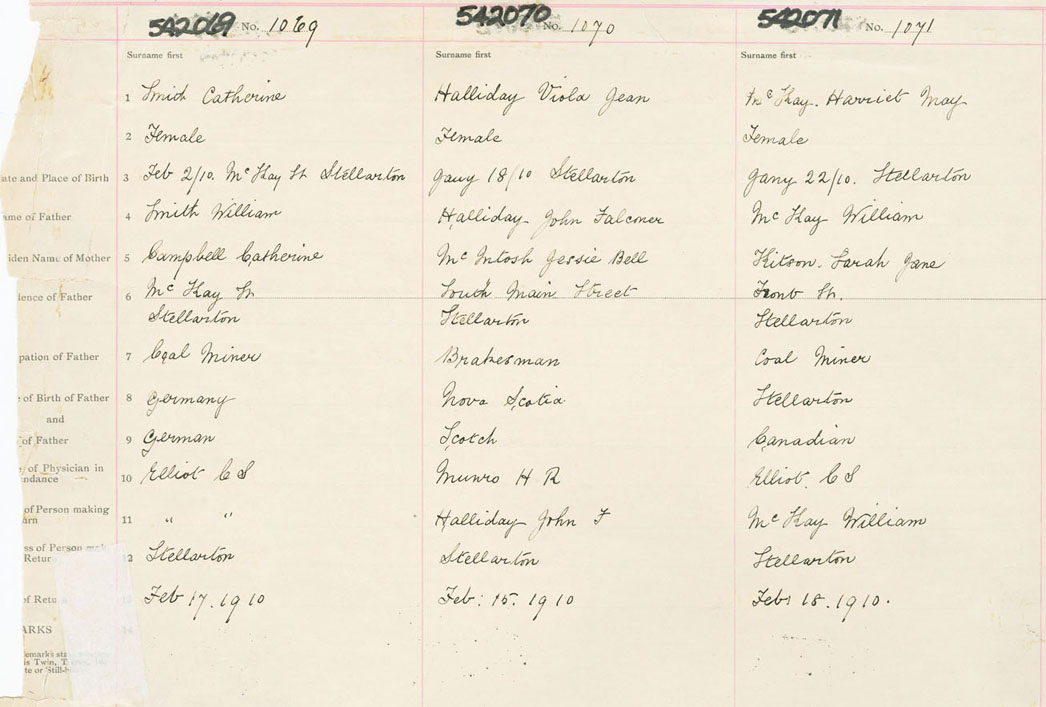 542069 No. 1069 542070 No. 1070 542071 No. 1071
Surname first Surname first Surname first
1 Smith Catherine Halliday Viola Jean McKay. Harriet May
2 Female Female Female
ate and Place of Birth 3 Feb 2/10. McKay St Stellarton Jany 18/10 Stellarton Jany 22/10. Stellarton
me of Father 4 Smith William Halliday John Falconer McKay William
iden Name of Mother 5 Campbell Catherine McIntosh Jessie Bell Kitson. Sarah Jane
dence of Father 6 McKay St South Main Street Front St.
Stellarton Stellarton Stellarton
pation of Father 7 Coal Miner Brakesman Coal Miner
e of Birth of Father 8 Germany Nova Scotia Stellarton
and
of Father 9 German Scotch Canadian
of Physician in
ndance 10 Elliot C S Munro H R Elliot. C S
of Person making
urn 11 " " Halliday John F McKay William
ss of Person mak
Retur 12 Stellarton Stellarton Stellarton
of Retu 13 Feb 17. 1910 Feb: 15. 1910 Feb: 18. 1910.
ARKS 14
is Twin,
te or Still-b